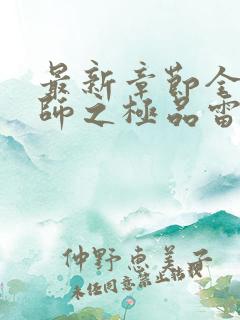 最新章節全
師之極品雷
仲野惠美子
未经同意禁止转载